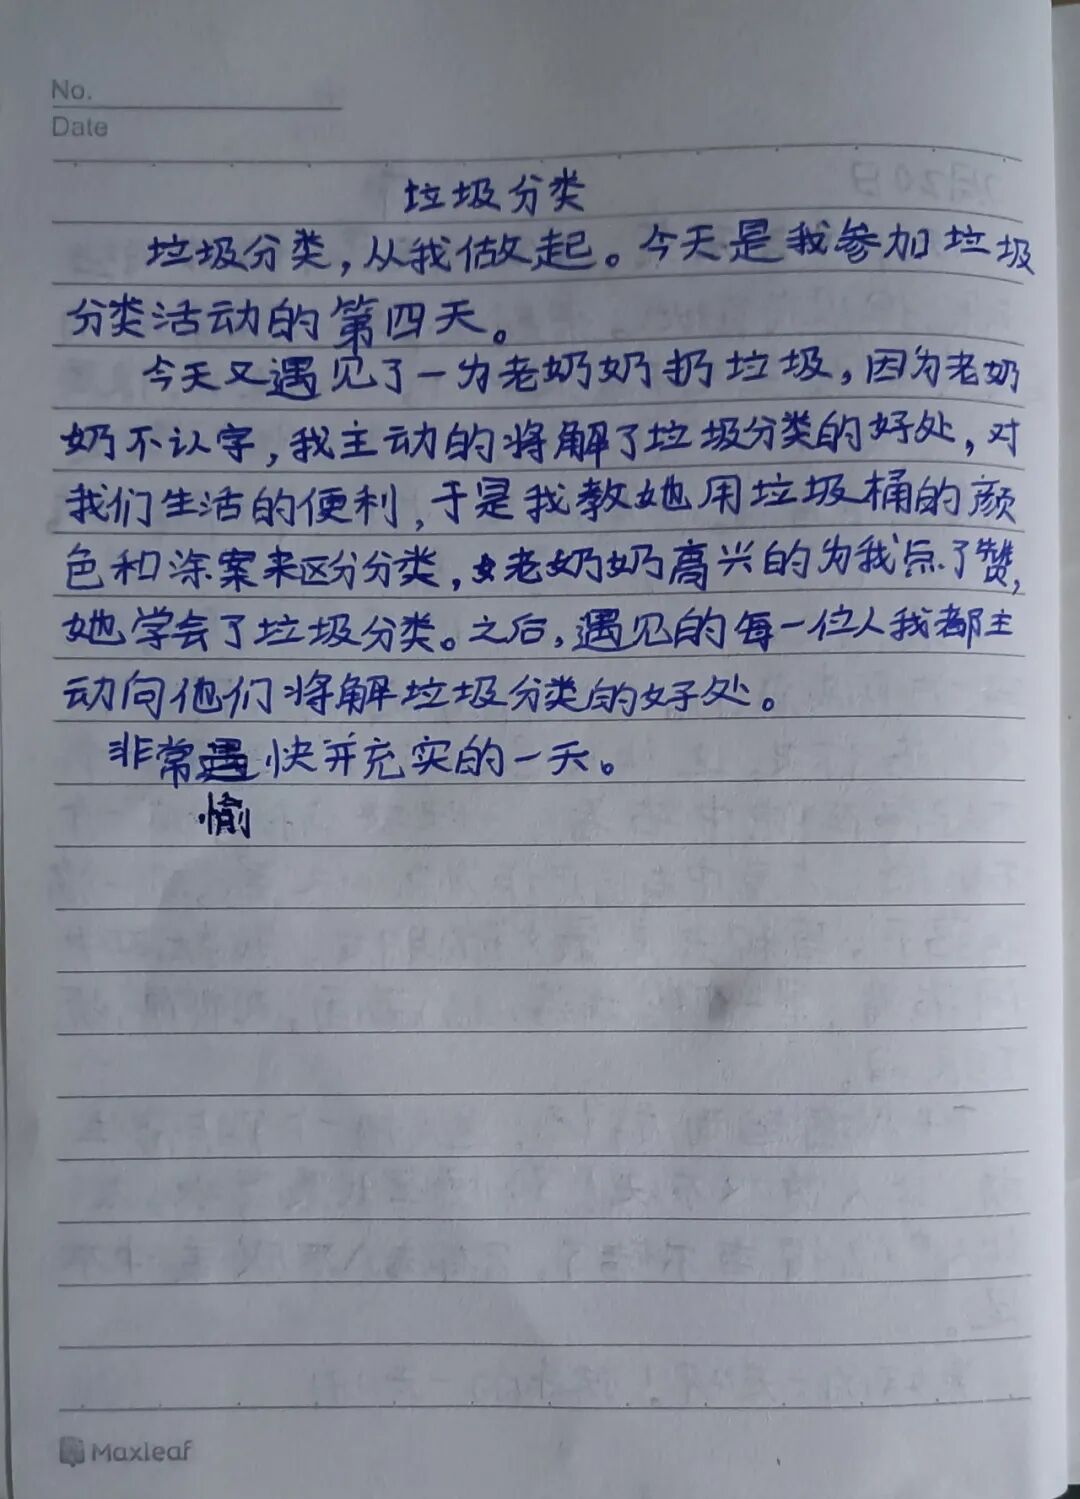 No.
Date
垃圾分类
垃圾分类，从我做起。今天是我参加垃圾
分类活动的第四天。
今天又遇见了一为老奶奶扔垃圾，因为老奶
奶不认字，我主动的将解了垃圾分类的好处，对
我们生活的便利，于是我教她用垃圾桶的颜
色和涂案来区分分类，老奶奶高兴的为我点了赞，
她学会了垃圾分类。之后，遇见的每一位人我都主
动向他们将解垃圾分类的好处。
非常快并充实的一天。
愉
Maxleaf